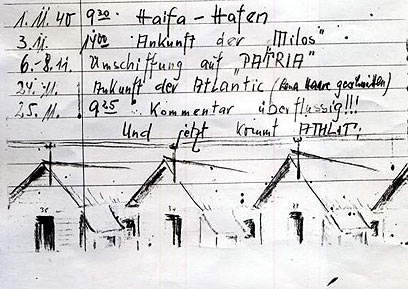 1.11.40 9³⁰ Haifa-Hafen
3.11. 14⁰⁰ Ankunft der "Milos"
6.-8.11. Umschiffung auf "PATRIA"
24.11. Ankunft der Atlantic (Haare geschnitten)
25.11. 9²⁵ Kommentar überflüssig!!!
Und jetzt kommt ATHLIT: